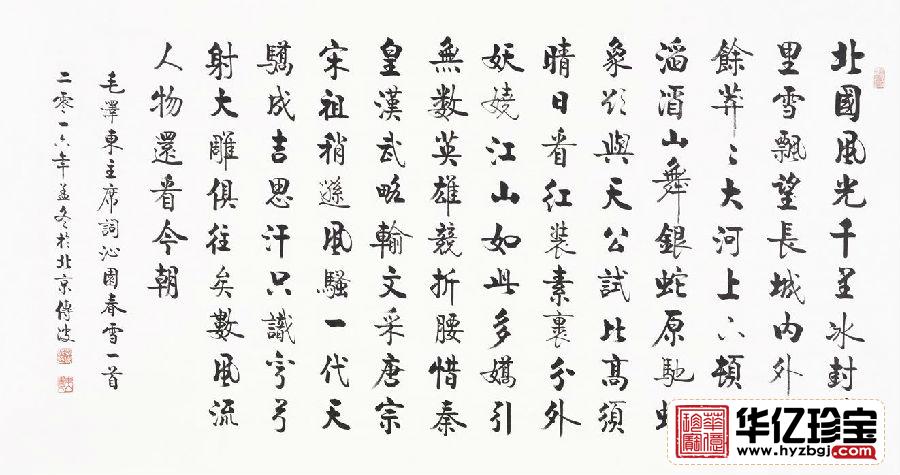 北國風光千里冰封
里雪飄望長城內外
餘莽〻大河上下頓
滔滔山舞銀蛇原馳
象欲與天公試比高須
晴日看紅裝素裹分外
妖嬈江山如此多嬌引
無數英雄競折腰惜秦
皇漢武略輸文采唐宗
宋祖稍遜風騷一代天
驕成吉思汗只識彎弓
射大雕俱往矣數風流
人物還看今朝
毛澤東主席詞沁園春雪一首
二零一六年孟冬於北京傳波
华亿珍宝
www.hyzbgj.com